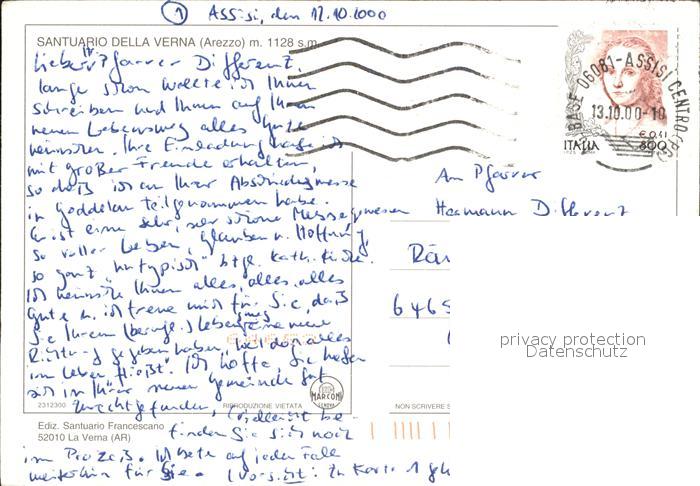 ① Assisi, den 12.10.2000
SANTUARIO DELLA VERNA (Arezzo) m. 1128 s.m.
Lieber Pfarrer Differenz.
lange schon wollte ich Ihnen
schreiben und Ihnen auf Ihrem
neuen Lebensweg alles Gute
wünschen. Ihre Einladung habe ich
mit großer Freude erhalten,
so daß ich an Ihrer Abschiedsmesse
in Goddelau teilgenommen habe.
Es ist eine sehr, sehr schöne Messe gewesen
so voller Leben, Glauben u. Hoffnung,
so ganz "untypisch" kath. Kirche.
Ich wünsche Ihnen alles, alles, alles
Gute u. ich freue mich für Sie, daß
Sie Ihrem Leben eine neue
Richtung gegeben haben, weil doch alles
im Leben fließt". Ich hoffe, Sie haben
sich in Ihrer neuen Gemeinde gut
zurechtgefunden, vielleicht be-
finden Sie sich noch
im Prozeß. Ich bete auf jeden Fall
weiterhin für Sie. (Vorsicht: Zu Karte 1
2312300
RIPRODUZIONE VIETATA
MARCONI
GENOVA
NON SCRIVERE S
Ediz. Santuario Francescano
52010 La Verna (AR)
06081-ASSISI CENTRO (PG)
13.10.00-10
€ 0,41
ITALIA 800
An Pfarrer
Hermann Differenz
646
privacy protection
Datenschutz